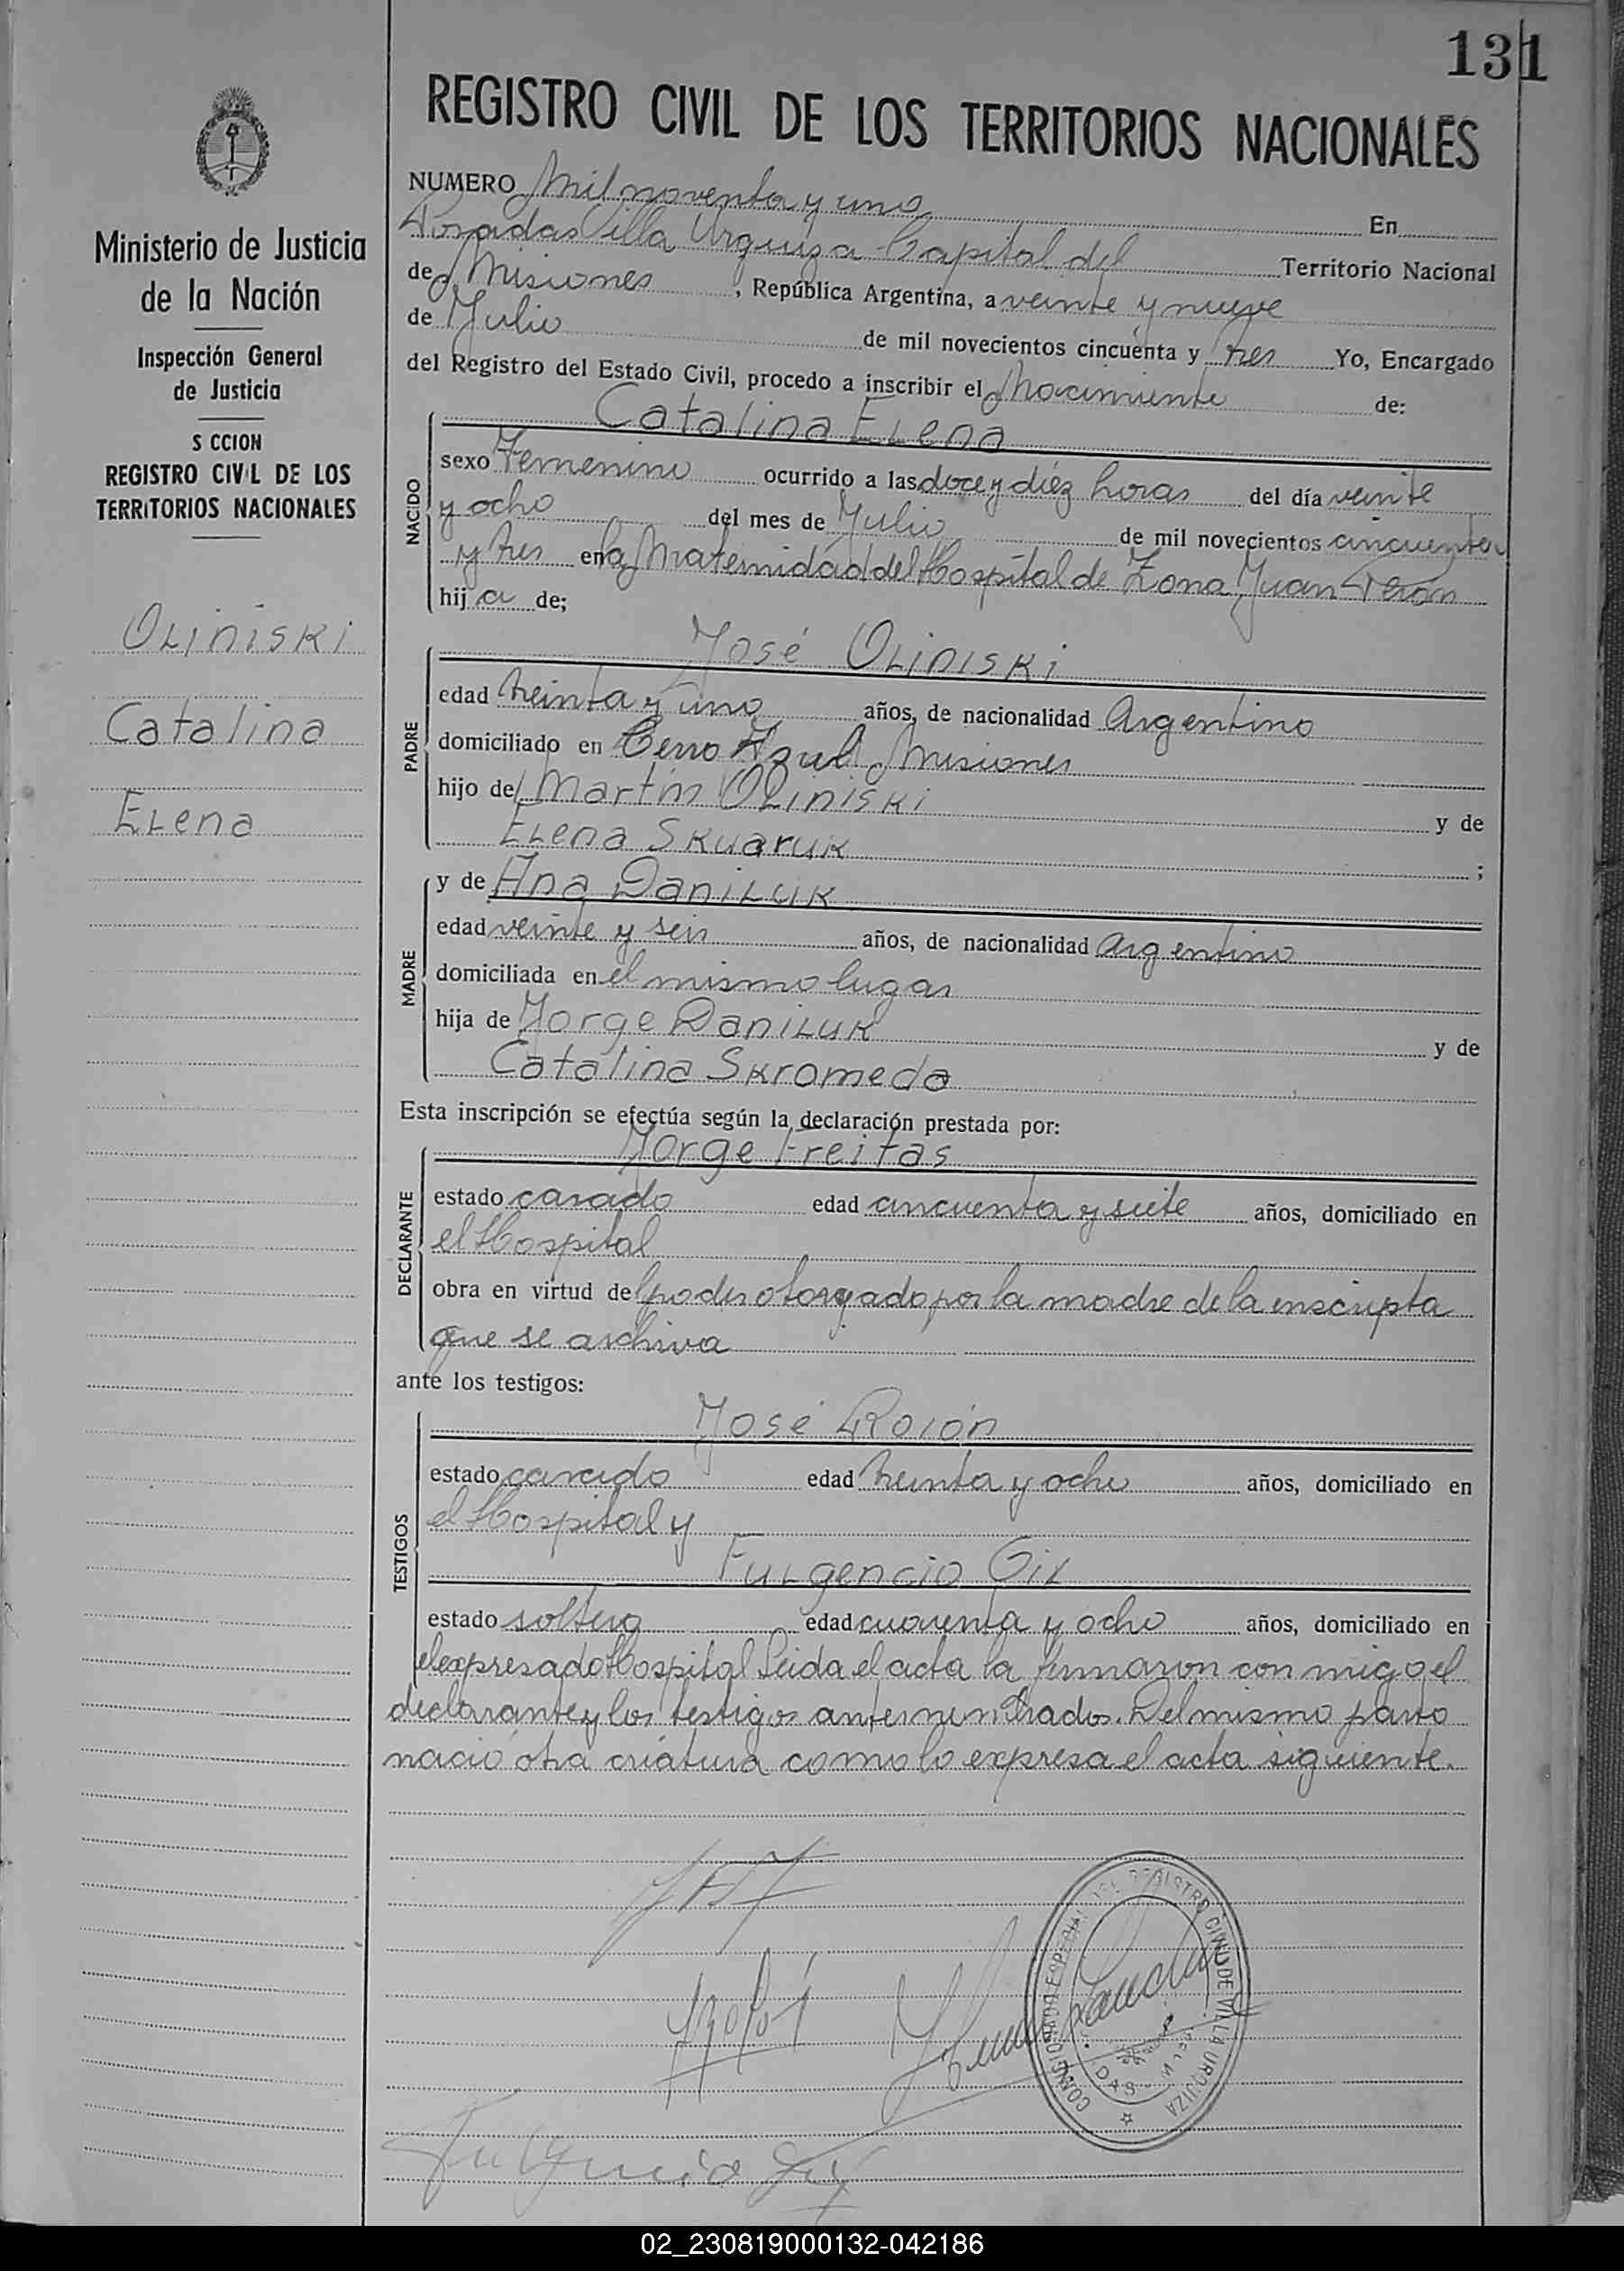 131
REGISTRO CIVIL DE LOS TERRITORIOS NACIONALES
Ministerio de Justicia
de la Nación
Inspección General
de Justicia
S CCION
REGISTRO CIVIL DE LOS
TERRITORIOS NACIONALES
Oliniski
Catalina
Elena
NUMERO Mil noventa y uno En
Posadas Villa Urquiza Capital del Territorio Nacional
de Misiones, República Argentina, a veinte y nueve
de Julio de mil novecientos cincuenta y tres Yo, Encargado
del Registro del Estado Civil, procedo a inscribir el Nacimiento de:
NACIDO
Catalina Elena
sexo Femenino ocurrido a las doce y diéz horas del día veinte
y ocho del mes de Julio de mil novecientos cincuenta
y tres en la Maternidad del Hospital de Zona Juan Perón
hija de;
PADRE
José Oliniski
edad treinta y uno años, de nacionalidad Argentino
domiciliado en Cerro Azul Misiones
hijo de Martín Oliniski y de
Elena Skuaruk ;
MADRE
y de Ana Daniluk
edad veinte y seis años, de nacionalidad Argentino
domiciliada en el mismo lugar
hija de Jorge Daniluk y de
Catalina Skromeda
Esta inscripción se efectúa según la declaración prestada por:
DECLARANTE
Jorge Freitas
estado casado edad cincuenta y siete años, domiciliado en
el Hospital
obra en virtud del poder otorgado por la madre de la inscripta
que se archiva
ante los testigos:
TESTIGOS
José Rolón
estado casado edad treinta y ocho años, domiciliado en
el Hospital y
Fulgencio Gil
estado soltero edad cuarenta y ocho años, domiciliado en
el expresado Hospital Leida el acta la firmaron con migo el
declarante y los testigos antes nombrados. Del mismo parto
nació otra criatura como lo expresa el acta siguiente.
REGISTRO CIVIL DE VILLA URQUIZA
Fulgencio Gil
02_230819000132-042186